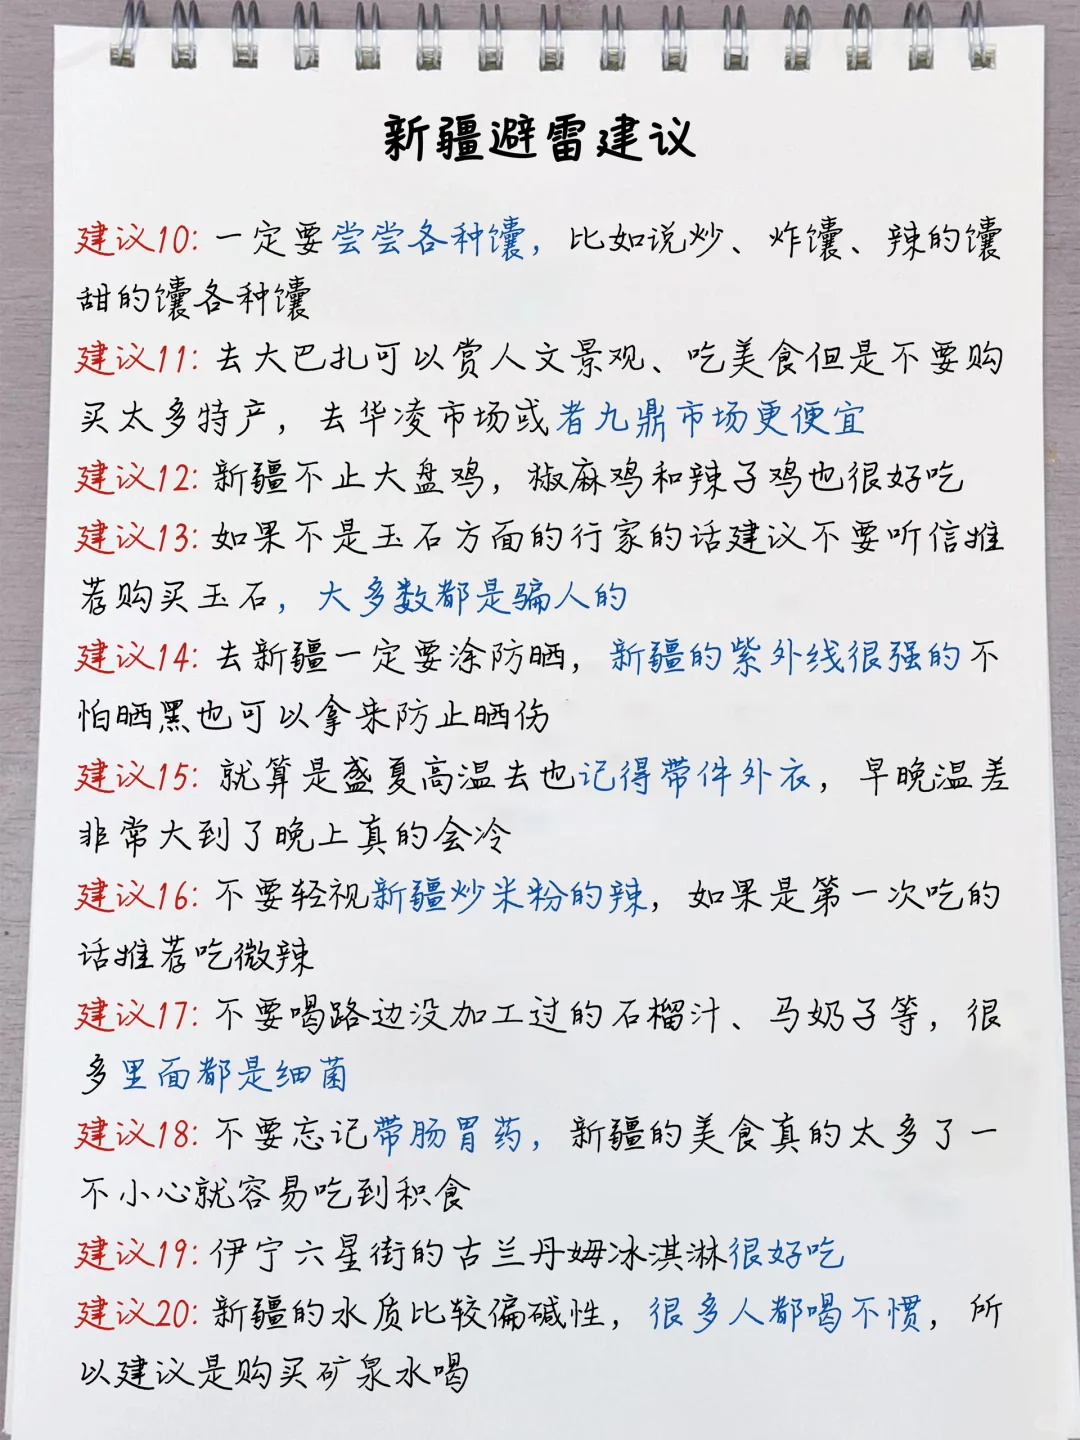 新疆避雷建议
建议10: 一定要尝尝各种馕，比如说炒、炸馕、辣的馕
甜的馕各种馕
建议11: 去大巴扎可以赏人文景观、吃美食但是不要购
买太多特产，去华凌市场或者九鼎市场更便宜
建议12: 新疆不止大盘鸡，椒麻鸡和辣子鸡也很好吃
建议13: 如果不是玉石方面的行家的话建议不要听信推
荐购买玉石，大多数都是骗人的
建议14: 去新疆一定要涂防晒，新疆的紫外线很强的不
怕晒黑也可以拿来防止晒伤
建议15: 就算是盛夏高温去也记得带件外衣，早晚温差
非常大到了晚上真的会冷
建议16: 不要轻视新疆炒米粉的辣，如果是第一次吃的
话推荐吃微辣
建议17: 不要喝路边没加工过的石榴汁、马奶子等，很
多里面都是细菌
建议18: 不要忘记带肠胃药，新疆的美食真的太多了一
不小心就容易吃到积食
建议19: 伊宁六星街的古兰丹姆冰淇淋很好吃
建议20: 新疆的水质比较偏碱性，很多人都喝不惯，所
以建议是购买矿泉水喝